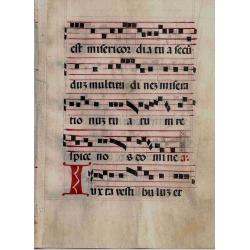 est misericor dia tu a secū
duz multitu di nez misera
tio nuz tu a rum re
spice no s do mine a:
Iux ta vesti bu luz et